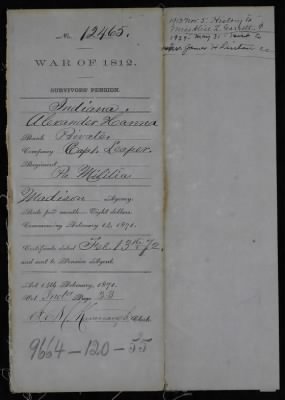 No. 12465.
WAR OF 1812.
SURVIVORS' PENSION.
Indiana.
Alexander Hanna
Rank Private.
Company Capt. Leeper.
Regiment
Pa Militia
Madison Agency.
Rate per month—Eight dollars.
Commencing February 14, 1871.
Certificate dated Feb. 13th 72.
and sent to Pension Agent.
Act 14th February, 1871.
Vol. Page 33
Clerk.
9664-120-55
1913 Nov 5. History to
1929 May 31
James H